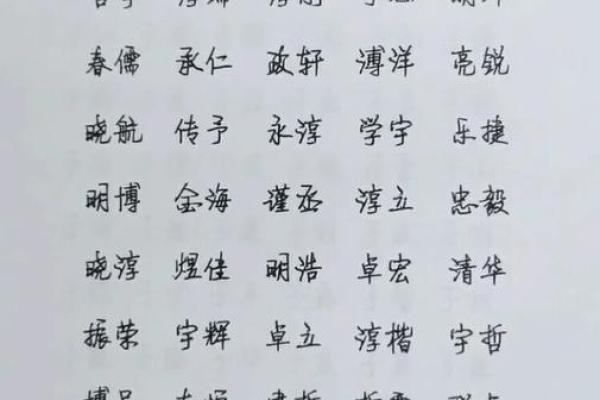 春儒 承仁 政轩 溥洋 亮锐
晓航 传予 永淳 学宇 乐捷
明博 金海 谨丞 淳立 忠毅
晓淳 煜佳 明浩 卓宏 清华
振荣 宇辉 卓立 淳楷 宇哲